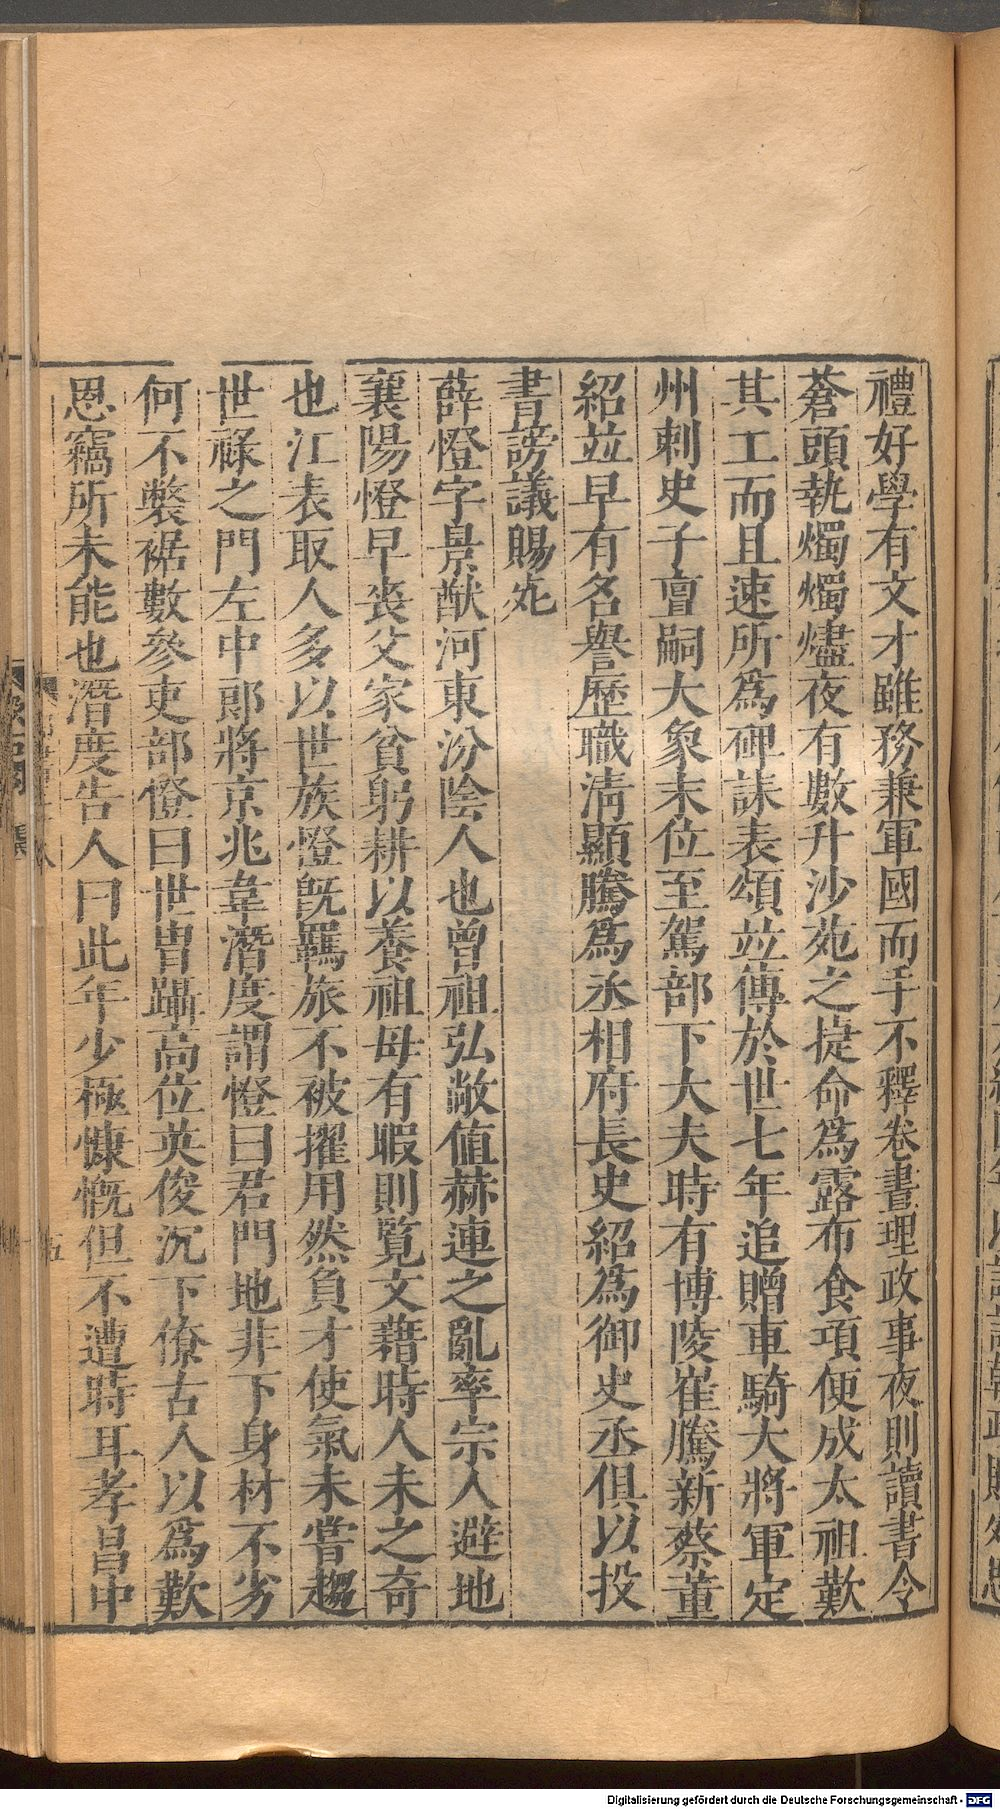 禮好學有文才雖務兼軍國而手不釋卷晝理政事夜則讀書令
蒼頭執燭燭燼夜有數升沙苑之捷命爲露布食項便成太祖歎
其工而且速所爲碑誄表頌竝傳於世七年追贈車騎大將軍定
州刺史子亶嗣大象末位至駕部下大夫時有博陵崔騰新蔡董
紹竝早有名譽歷職清顯騰爲丞相府長史紹爲御史丞俱以投
書謗議賜死
薛憕字景猷河東汾陰人也曾祖弘敞值赫連之亂率宗人避地
襄陽憕早喪父家貧躬耕以養祖母有暇則覽文藉時人未之奇
也江表取人多以世族憕旣羈旅不被擢用然負才使氣未嘗趨
世祿之門左中郎將京兆韋潛度謂憕曰君門地非下身材不劣
何不㡜裾數參吏部憕曰世冑躡高位英俊沉下僚古人以爲歎
恩竊所未能也潛度告人曰此年少極慷慨但不遭時耳孝昌中
Digitalisierung gefördert durch die Deutsche Forschungsgemeinschaft - DFG